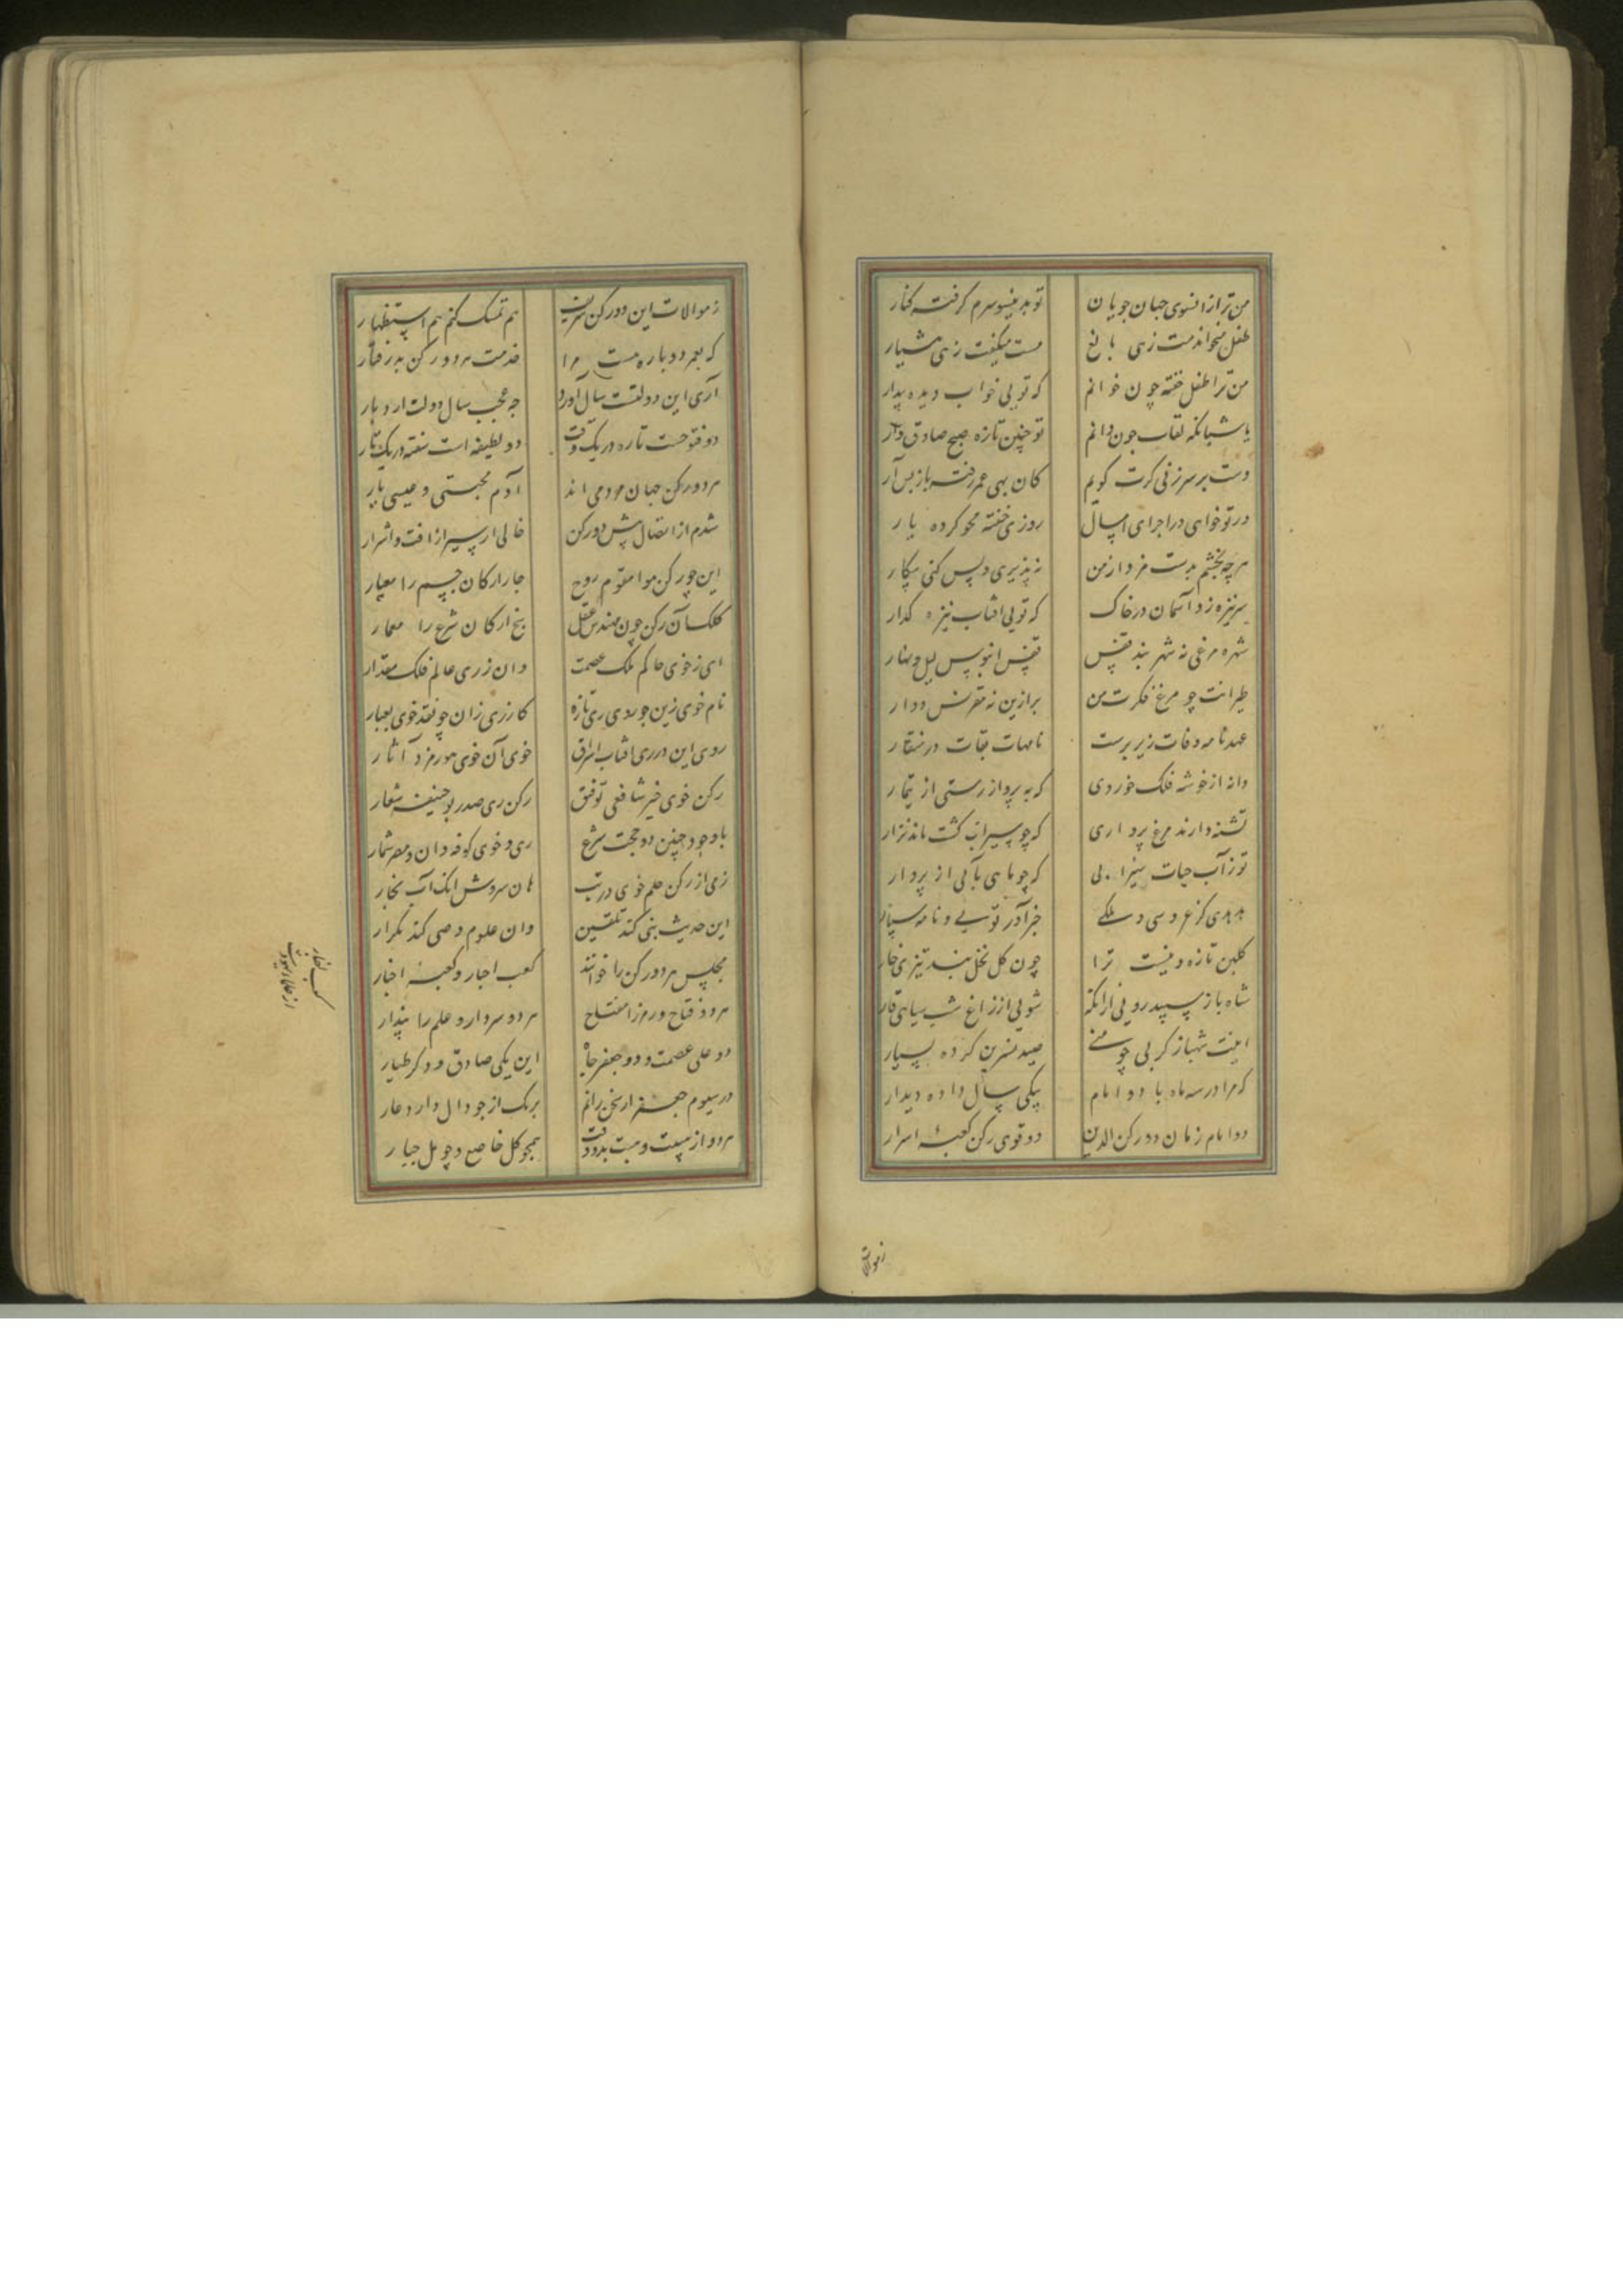 من ترا از آنسوی جهان جویان تو بدینسو سرم گرفته کنار
طفل میخواندمت زهی بالغ مست میگفتمت زهی هشیار
من ترا طفل خفته چون خوانم که تویی خواب دیده بیدار
یا شبانگه لقات چون دانم تو چنین تازه صبح صادق وار
دست بر سر زنی گرت گویم کان بهی عمر رفته باز پس آر
ور تو خواهی در اجرای امسال روزی خفته محو کرده یار
هرچه بخشم بدست مزد از من نپذیری و پس کنی پیکار
سر نیزه زد آسمان در خاک که تویی آفتاب نیزه گذار
شهره مرغی نه شهر بند قفس قفس آبنوس لیل و نهار
طیرانت چو مرغ فکرت من برازین نه مقرنس دوار
عهدنامه وفات زیر پرست نامهات نجات در منقار
دانه از خوشه فلک خوردی که به پرواز رستی از تیمار
تشنه دارند مرغ پرواری که چو سیراب گشت ماند نزار
تو ز آب حیات سیرابی که چو ماهی بآبی از پروار
هدهدی کز عروسی و ملکی خبر آور تویی و نامه سپار
گلبن تازه و نیست ترا چون گل نخل بند تیزی خار
شاه باز سپید رویی از آنکه شویی از زاغ شب سیاهی قار
اینت شهباز کز پی چو منی صید نسرین کرده بسیار
که مرا در سه ماه با دو امام بیکی سال داده دیدار
دو امام زمان دو رکن الدین دو قوی رکن کعبه اسرار
زموالات
زموالات این دو رکن شریف هم تمسک کنم هم استظهار
که بعمر دوباره هست مرا خدمت هر دو رکن پذرفتار
آری این دولتست سال آورد چه عجب سال دولت آرد بار
دو فتوحست تازه در یک وقت دو لطیفه است سفته در یک تار
هر دو رکن جهان مردمی اند آدم مجتبی و عیسی یار
شدم از اتصال پیش دو رکن خالی از سیر از آفت و اشرار
این چو رکن هوا مقوم روح چار ارکان جسم را معیار
کلک آن رکن چون مهندس عقل پنج ارکان شرع را معمار
ای ز خوی حاکم ملک عصمت وان ز ری عالم فلک مقدار
نام خوی زین چو روی ری تازه کار ری زان چو نقد خوی بعیار
روی این در ری آفتاب اشراق خوی آن خوی هورمزد آثار
رکن خوی خیر شافعی توفیق رکن ری صدر بوحنیفه شعار
با وجود چنین دو حجت شرع ری و خوی کوفه دان و مصر شمار
زی از رکن علم خوی در تب هان سروش اینک آب بخار
این حدیث نبی کند تلقین وان علوم وصی کند تکرار
مجلس هر دو رکن را خوانند کعب احبار و کعبه اخبار
هر دو فتاح و رمز را مفتاح هر دو سردار و علم را بندار
دو علی عصمت و دو جعفر جاه این یکی صادق و دگر طیار
در سیوم جعفر ار سخن رانم برمک از جود آل دارد عار
هر دو از هیبت و هبت بدو وقت همچو گل خاضع و چو مل جبار
کعب احبار
از علمای یهود است